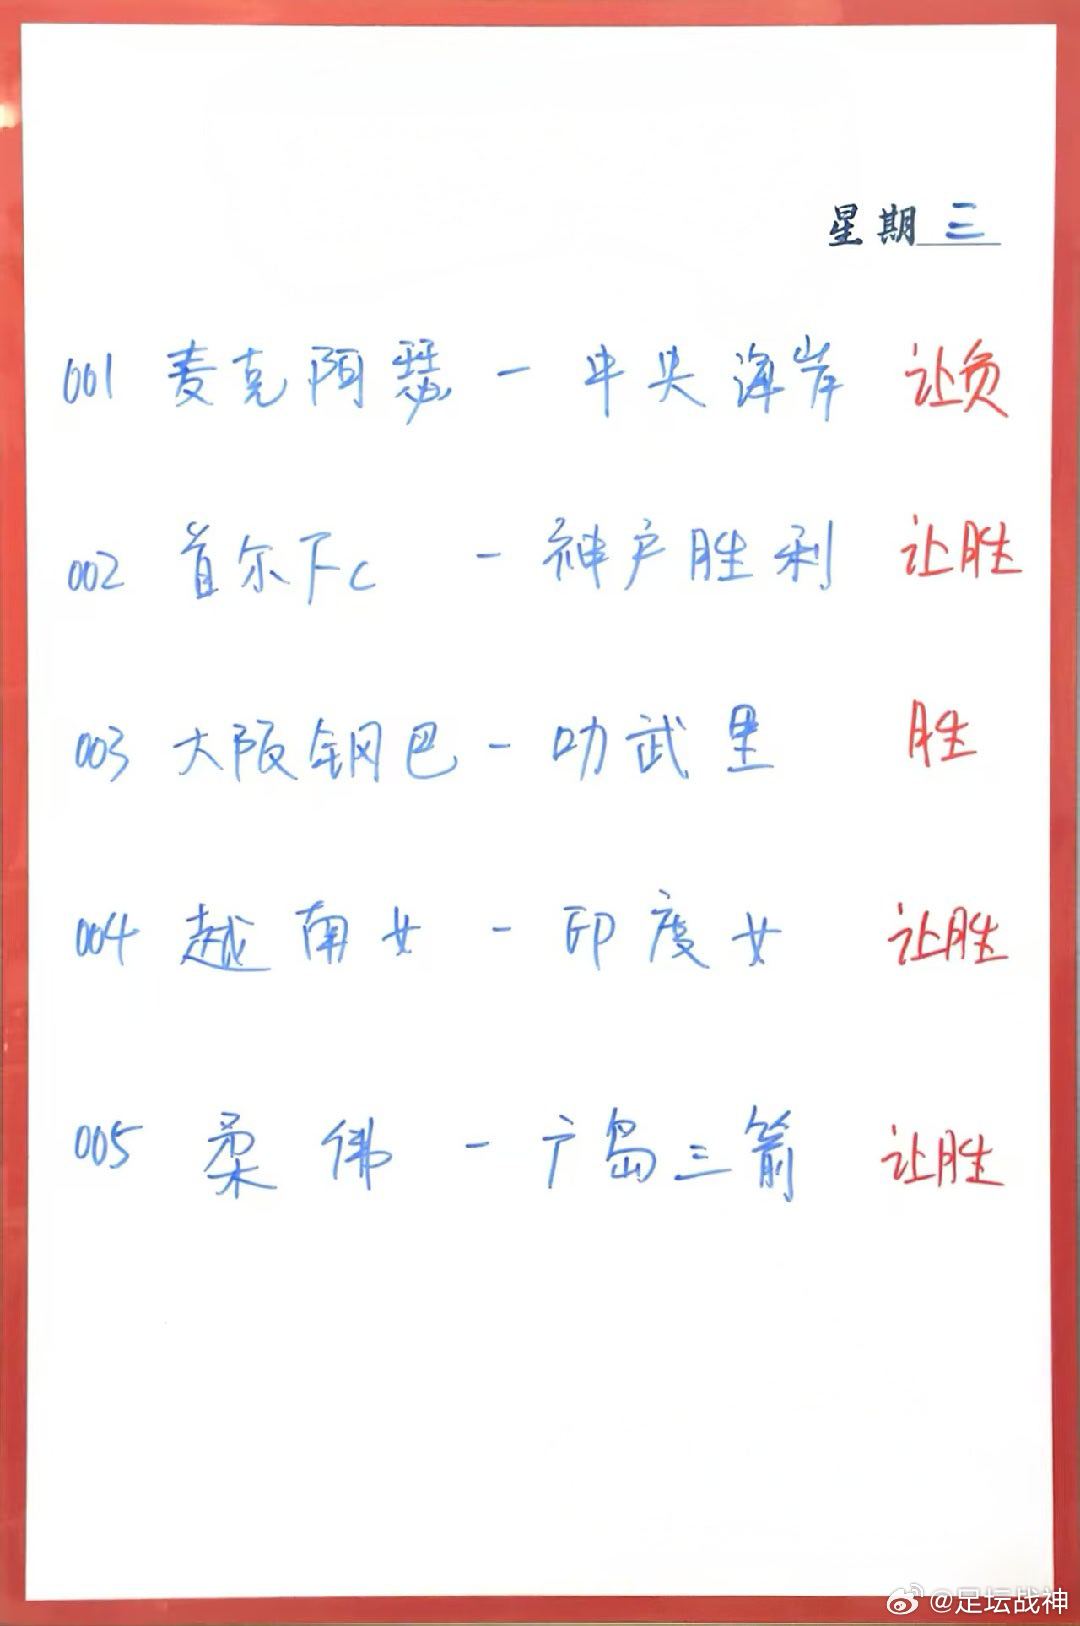 星期三
001 麦克阿瑟 - 中央海岸 让负
002 首尔FC - 神户胜利 让胜
003 大阪钢巴 - 叻武里 胜
004 越南女 - 印度女 让胜
005 柔佛 - 广岛三箭 让胜
@足坛战神